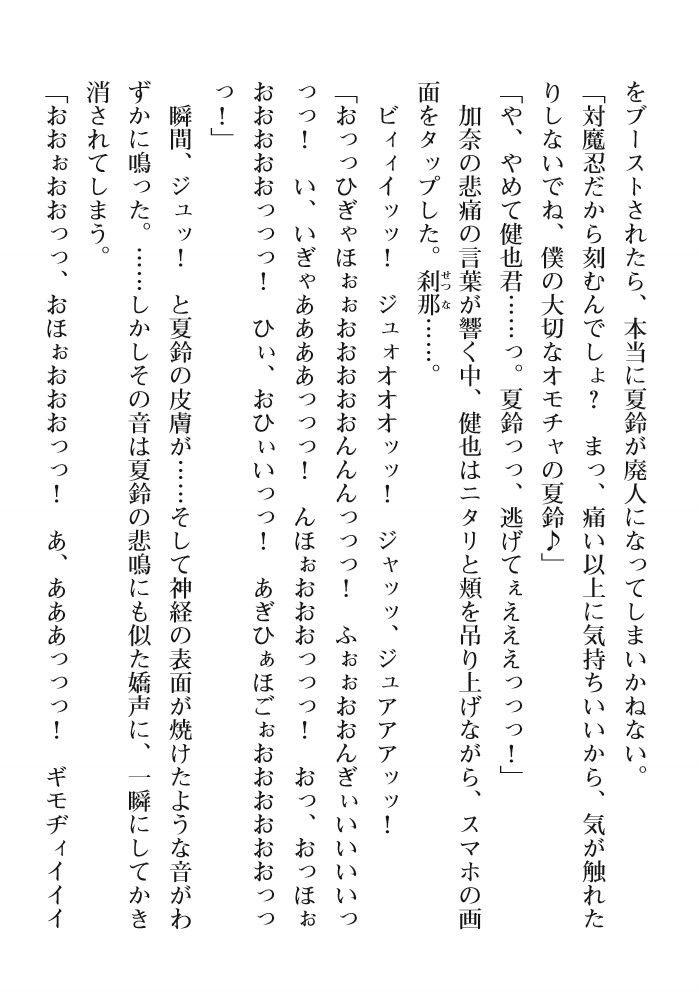 をブーストされたら、本当に夏鈴が廃人になってしまいかねない。
「対魔忍だから刻むんでしょ？　まっ、痛い以上に気持ちいいから、気が触れた
りしないでね、僕の大切なオモチャの夏鈴♪」
「や、やめて健也君……っ。夏鈴っっ、逃げてぇえええっっっ！」
　加奈の悲痛の言葉が響く中、健也はニタリと頬を吊り上げながら、スマホの画
面をタップした。刹那せつな……。
　ビィィイッッ！　ジュォオオオッッ！　ジャッッ、ジュアアアッッ！
「おっっひぎゃほぉぉおおおおおんんんっっっ！　ふぉぉおおんぎぃいいいいっ
っっ！　い、いぎゃああああっっっ！　んほぉおおおっっっ！　おっ、おっほぉ
おおおおおっっっ！　ひぃ、おひぃいっっ！　あぎひぁほごぉおおおおおおっっ
っ！」
　瞬間、ジュッ！　と夏鈴の皮膚が……そして神経の表面が焼けたような音がわ
ずかに鳴った。……しかしその音は夏鈴の悲鳴にも似た嬌声に、一瞬にしてかき
消されてしまう。
「おおぉおおっっ、おほぉおおおっっ！　あ、あああっっっ！　ギモヂィイイイ